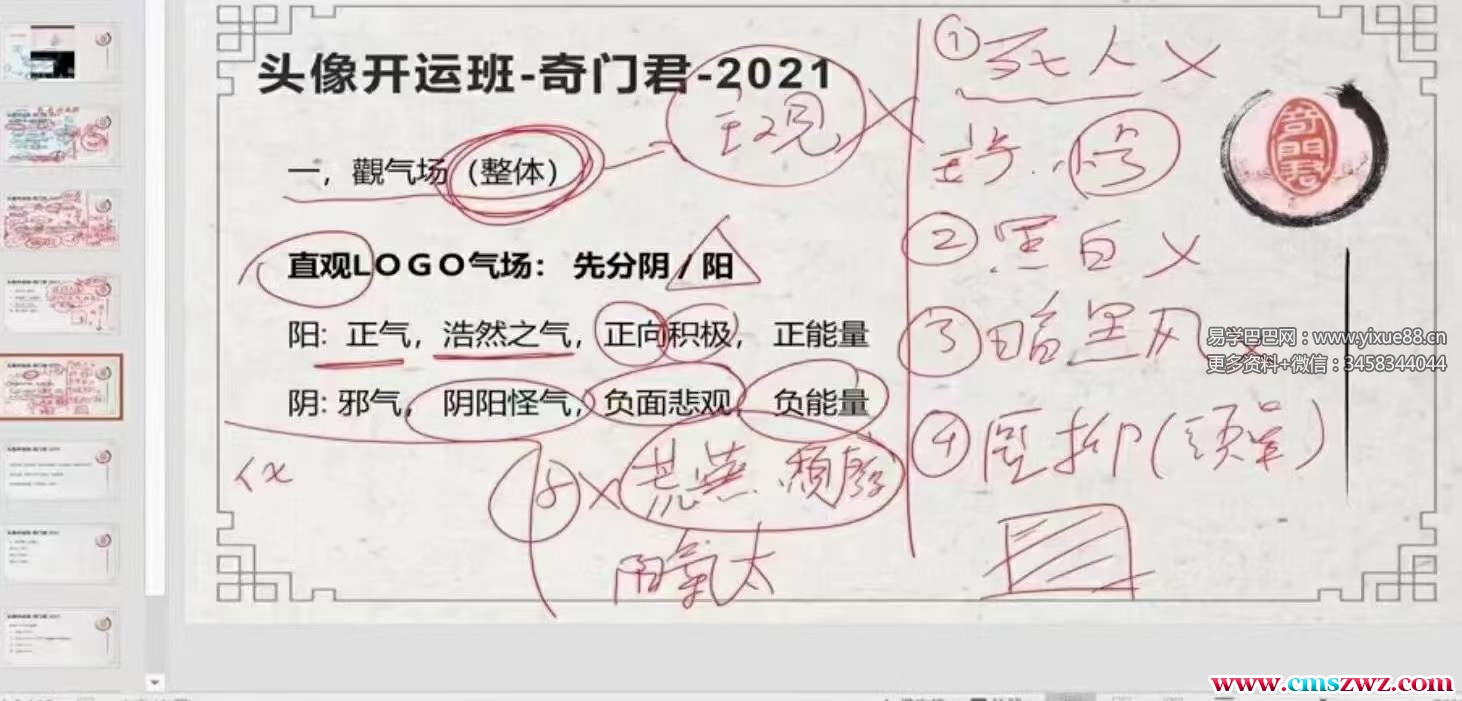 头像开运班-奇门君-2021
一，觀气场（整体）
主观
直观LOGO气场： 先分阴/阳
阳: 正气，浩然之气，正向积极， 正能量
阴: 邪气， 阴阳怪气，负面悲观， 负能量
荒蕪 頹廢
陽氣太
① 死人 ×
② 黑白 ×
③ 暗黑风
④ 壓抑(頭單)
奇門君
易学巴巴网：www.yixue88.cn
更多资料+微信：3458344044
www.cmszwz.com